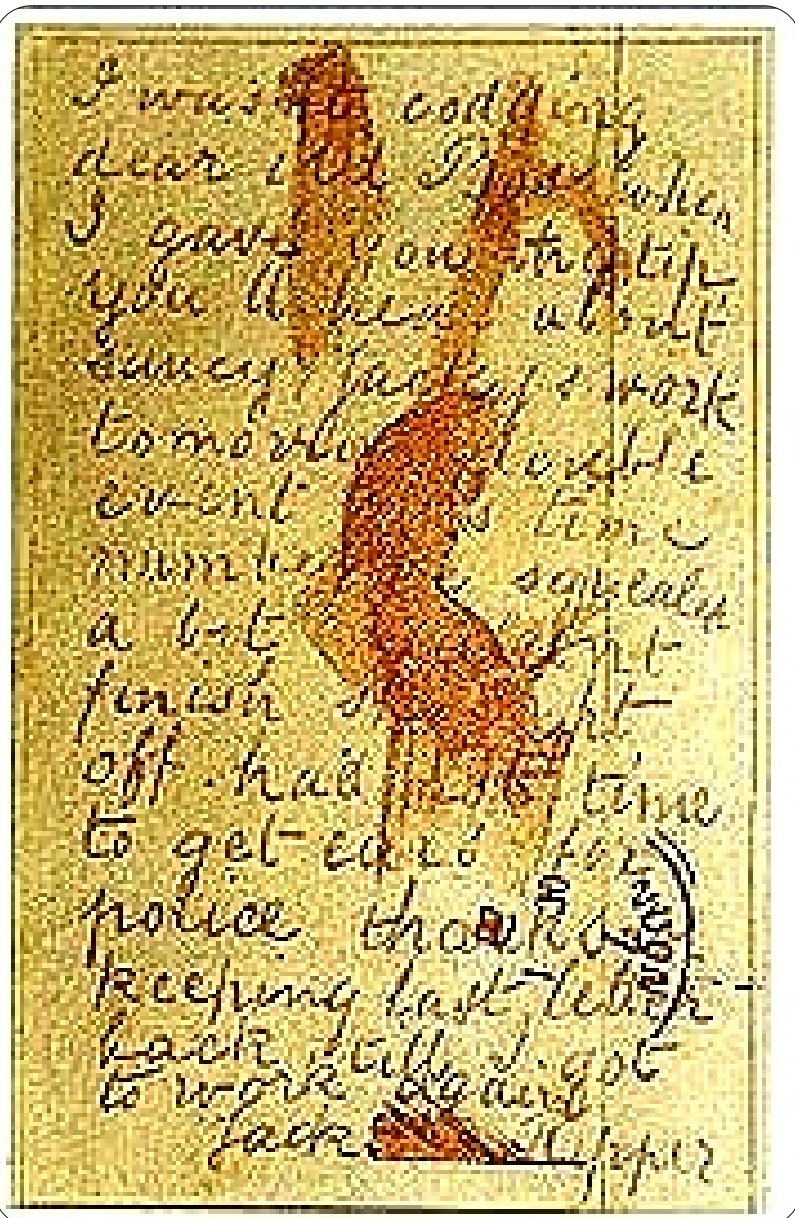 I was not codding
dear old Boss when
I gave you the tip
you'll hear about
saucy Jacky's work
tomorrow double
event this time
number squealed
a bit couldn't
finish straight
off. had not time
to get ears for
police thanks for
keeping last letter
back till I got
to work again
Jack the Ripper
LONDON